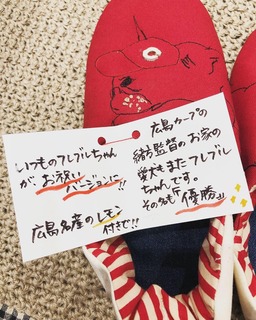 いつものフレブルちゃん
が、お祝い
バージョンに!!
広島名産のレモン
付きで!!
広島カープの
緒方監督のお家の
愛犬もまたフレブル
ちゃんです。
その名も『優勝』